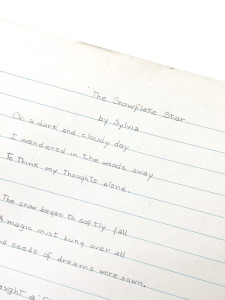 The Snowflake Star
by Sylvia
On a dark and cloudy day
I wandered in the woods away
To think my thoughts alone.
The snow began to softly fall
A magic mist hung over all
nd seeds of dreams were sown.
aught a